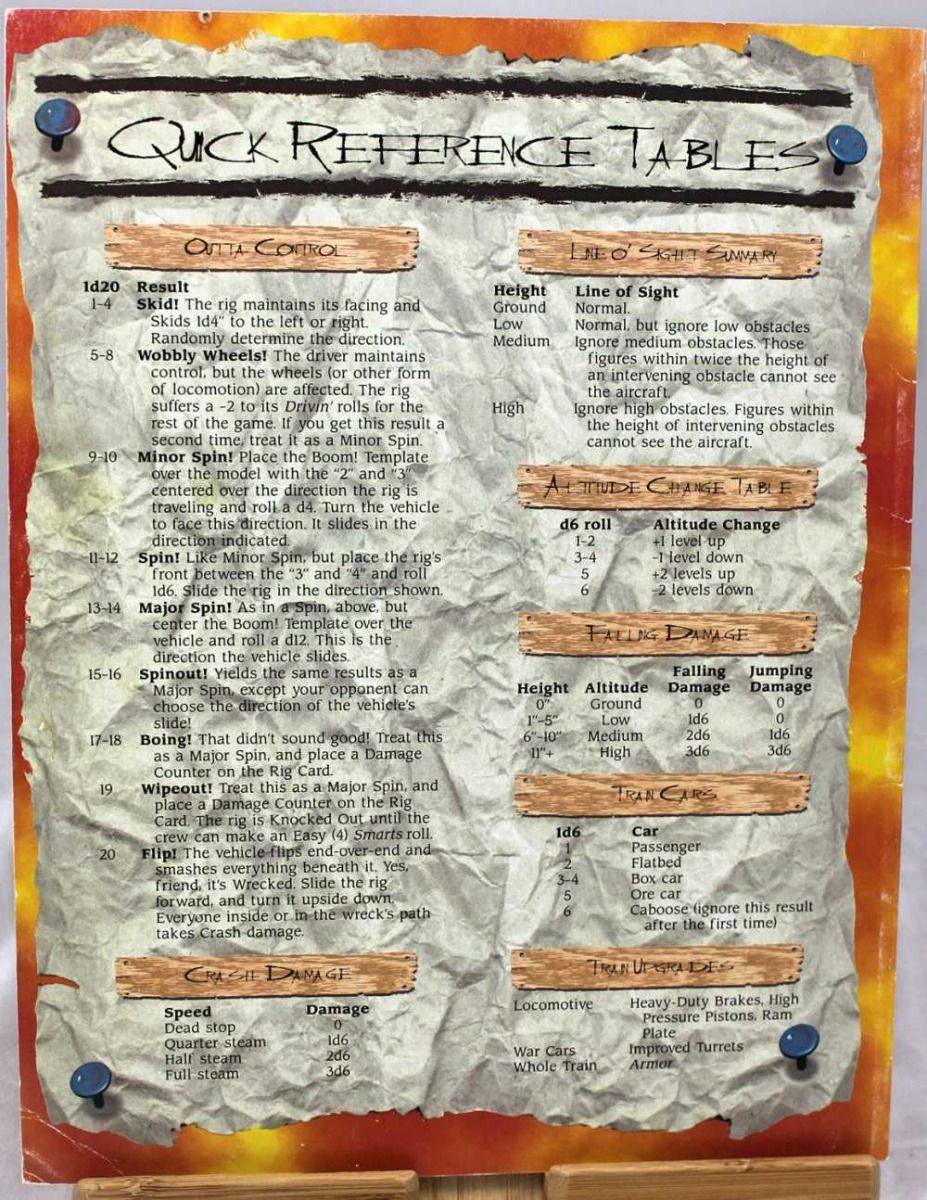 QUICK REFERENCE TABLES
OUTTA CONTROL
1d20 Result
1-4 Skid! The rig maintains its facing and
Skids 1d4" to the left or right.
Randomly determine the direction.
5-8 Wobbly Wheels! The driver maintains
control, but the wheels (or other form
of locomotion) are affected. The rig
suffers a -2 to its Drivin' rolls for the
rest of the game. If you get this result a
second time, treat it as a Minor Spin.
9-10 Minor Spin! Place the Boom! Template
over the model with the "2" and "3"
centered over the direction the rig is
traveling and roll a d4. Turn the vehicle
to face this direction. It slides in the
direction indicated.
11-12 Spin! Like Minor Spin, but place the rig's
front between the "3" and "4" and roll
1d6. Slide the rig in the direction shown.
13-14 Major Spin! As in a Spin, above, but
center the Boom! Template over the
vehicle and roll a d12. This is the
direction the vehicle slides.
15-16 Spinout! Yields the same results as a
Major Spin, except your opponent can
choose the direction of the vehicle's
slide!
17-18 Boing! That didn't sound good! Treat this
as a Major Spin, and place a Damage
Counter on the Rig Card.
19 Wipeout! Treat this as a Major Spin, and
place a Damage Counter on the Rig
Card. The rig is Knocked Out until the
crew can make an Easy (4) Smarts roll.
20 Flip! The vehicle flips end-over-end and
smashes everything beneath it. Yes,
friend, it's Wrecked. Slide the rig
forward, and turn it upside down.
Everyone inside or in the wreck's path
takes Crash damage.
CRASH DAMAGE
Speed Damage
Dead stop 0
Quarter steam 1d6
Half steam 2d6
Full steam 3d6
LINE O' SIGHT SUMMARY
Height Line of Sight
Ground Normal.
Low Normal, but ignore low obstacles
Medium Ignore medium obstacles. Those
figures within twice the height of
an intervening obstacle cannot see
the aircraft.
High Ignore high obstacles. Figures within
the height of intervening obstacles
cannot see the aircraft.
ALTITUDE CHANGE TABLE
d6 roll Altitude Change
1-2 +1 level up
3-4 -1 level down
5 +2 levels up
6 -2 levels down
FALLING DAMAGE
Falling Jumping
Height Altitude Damage Damage
0" Ground 0 0
1"-5" Low 1d6 0
6"-10" Medium 2d6 1d6
11"+ High 3d6 3d6
TRAIN CARS
1d6 Car
1 Passenger
2 Flatbed
3-4 Box car
5 Ore car
6 Caboose (ignore this result
after the first time)
TRAIN UPGRADES
Locomotive Heavy-Duty Brakes, High
Pressure Pistons, Ram
Plate
War Cars Improved Turrets
Whole Train Armor